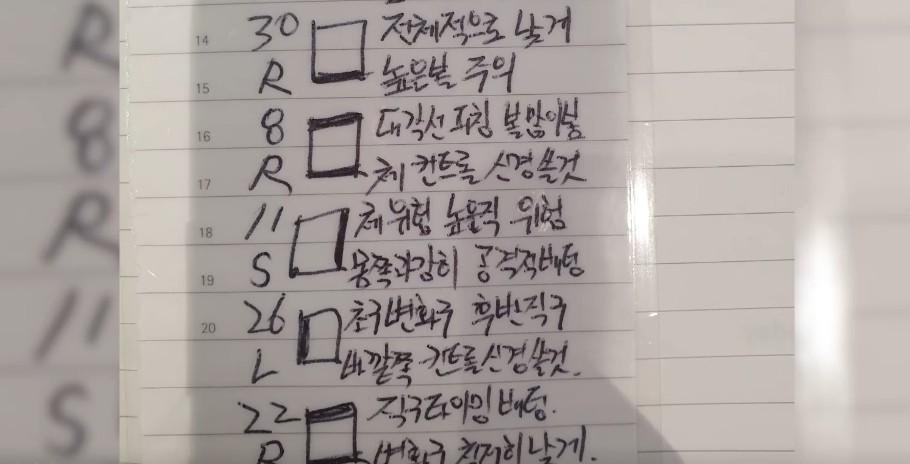 14 30 전체적으로 낮게
15 R 높은볼 주의
16 8 대각선 피칭 볼많이봄
17 R 체 컨트롤 신경쓸것
18 11 체위험 높은직 위험
19 S 몸쪽과감히 공격적배팅
20 26 초구변화구 후반직구
L 바깥쪽 컨트롤신경쓸것.
22 직구타이밍 배팅.
R 변화구 철저히 낮게.
R
8
R
11
S